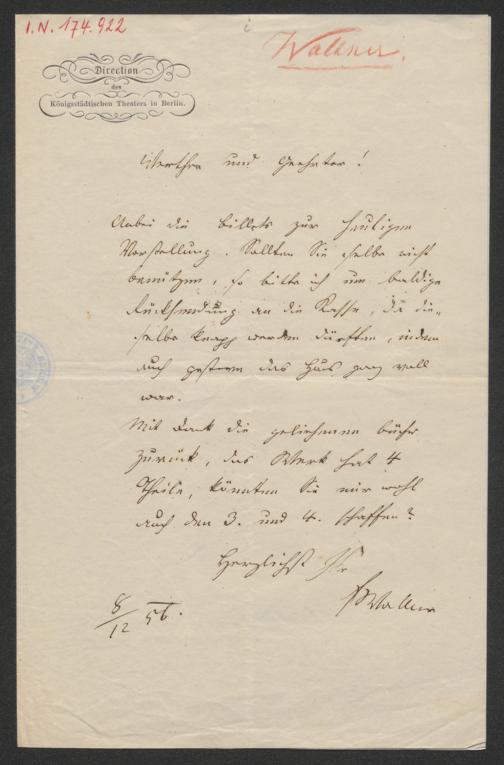 I.N. 174.922
Wallner.
Direction
des
Königsstädtischen Theaters in Berlin.
und Geehrter!
Anbei die Billets zur heutigen
Vorstellung. Sollten Sie selbe nicht
benützen, so bitte ich um baldige
Rücksendung an die Kasse, da die-
selbe knapp werden dürften, indem
auch gestern das Haus ganz voll
war.
Mit Dank die geliehenen Bücher
zurück, das Werk hat 4
Theile, könnten Sie mir wohl
auch den 3. und 4. schaffen?
Herzlichst Ihr
FWallner
8/12 56.